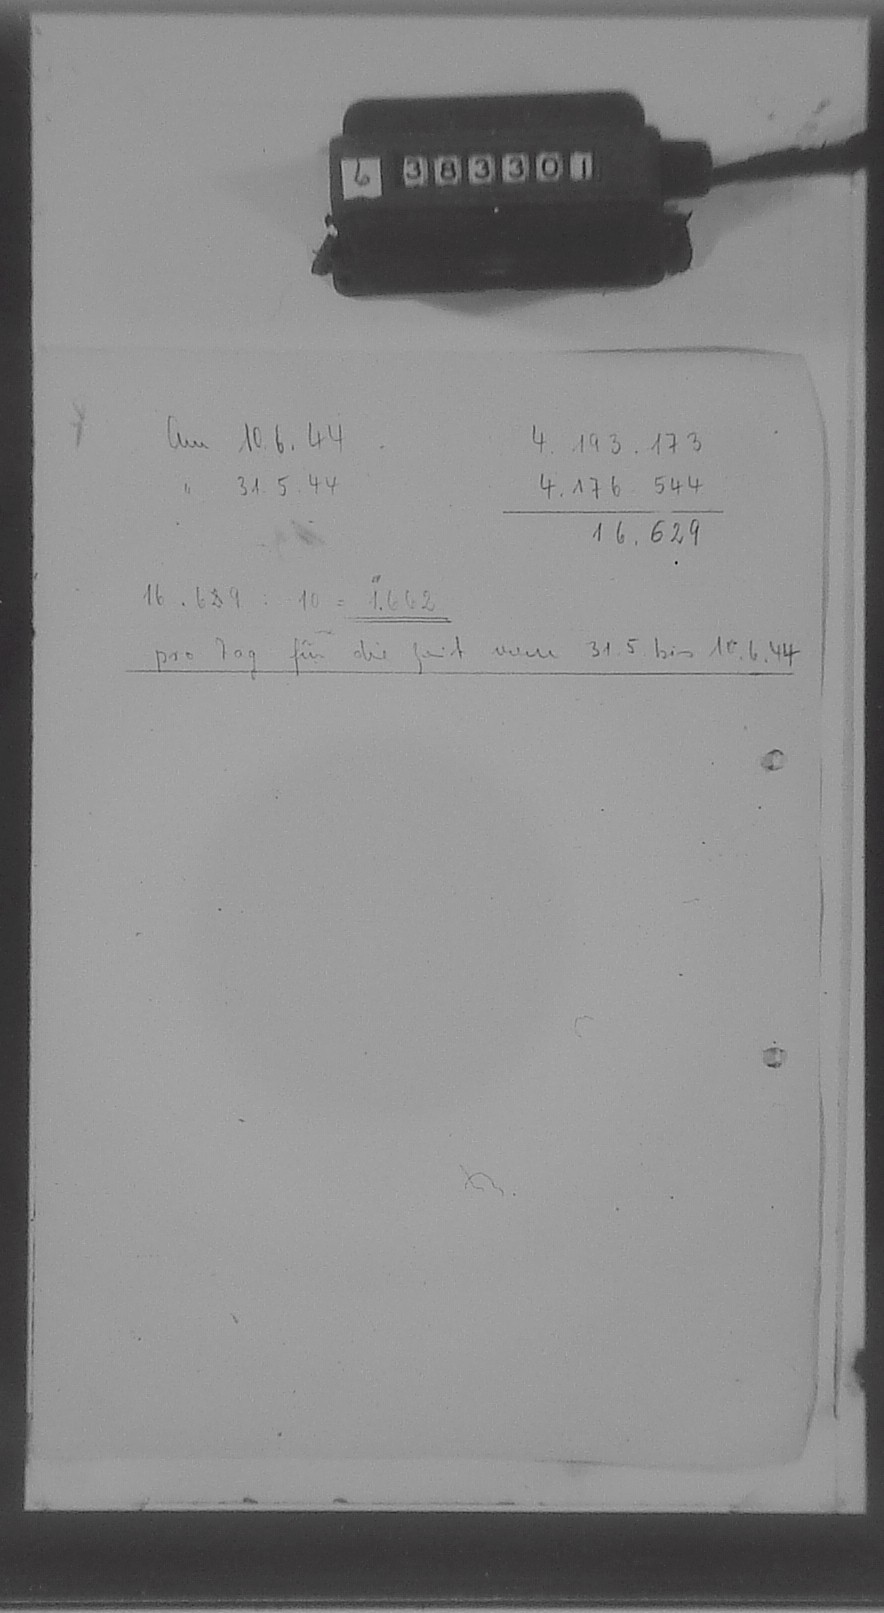 6 383301
Am 10.6.44 4.193.173
" 31.5.44 4.176.544
16.629
16.629 : 10 = 1.662
pro Tag für die Zeit vom 31.5. bis 10.6.44